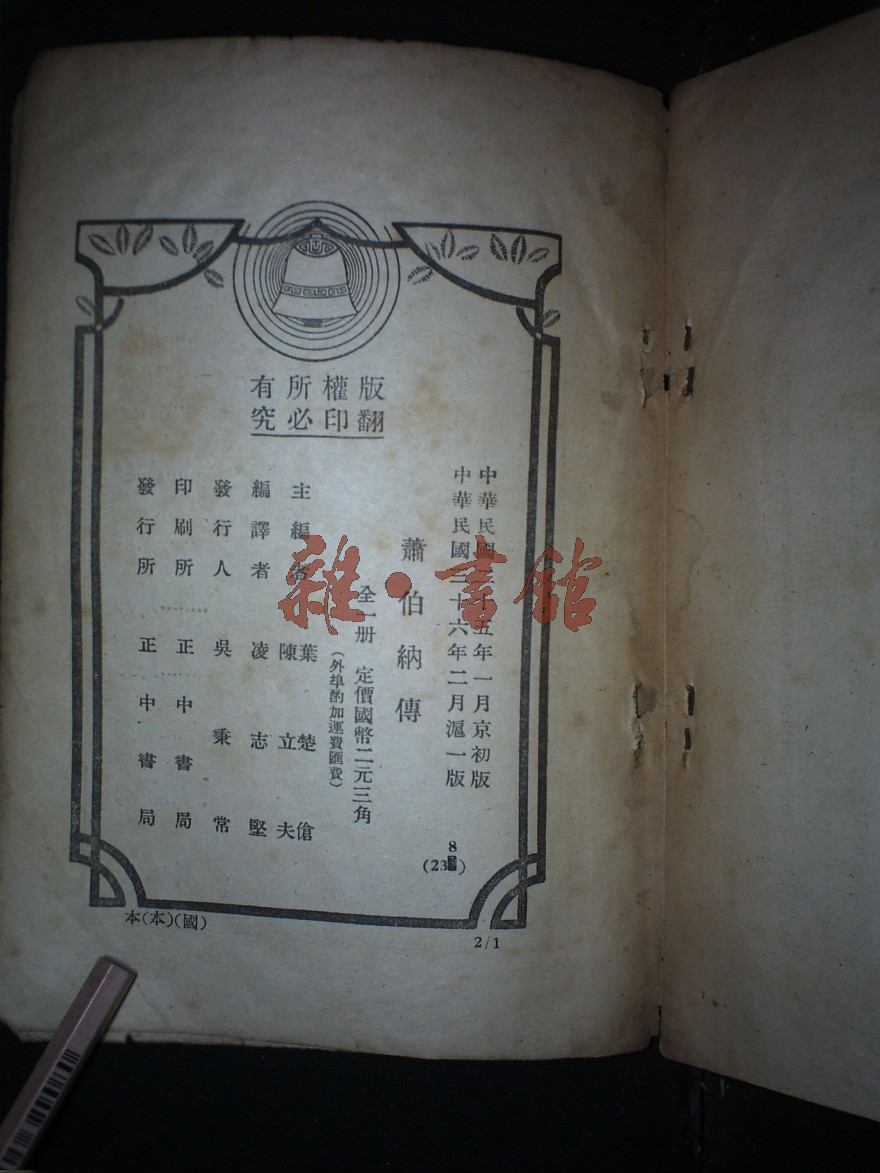 版權所有
翻印必究
中華民國二十五年一月京初版
中華民國三十六年二月滬一版
蕭伯納傳
全一册 定價國幣二元三角
(外埠酌加運費匯費)
主編者 葉楚傖
陳立夫
編譯者 凌志堅
發行人 吳秉常
印刷所 正中書局
發行所 正中書局
8
(23)
本(本)(國)
2/1
雜·書館